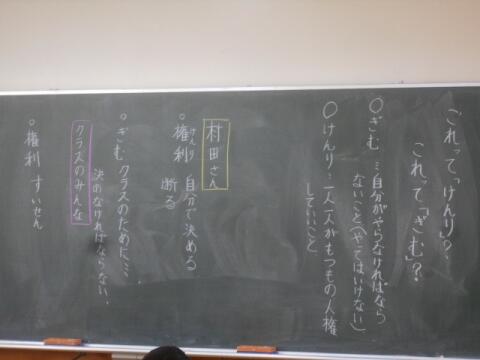 これって「けんり」?
これって「ぎむ」?
○ぎむ…自分がやらなければなら
ないこと(やってはいけない)
○けんり…一人一人がもつもの 人権
していいこと
村田さん
○権利 自分で決める
けんり
断る
○ぎむ クラスのために…
決めなければならない、
クラスのみんな
○権利 すいせん